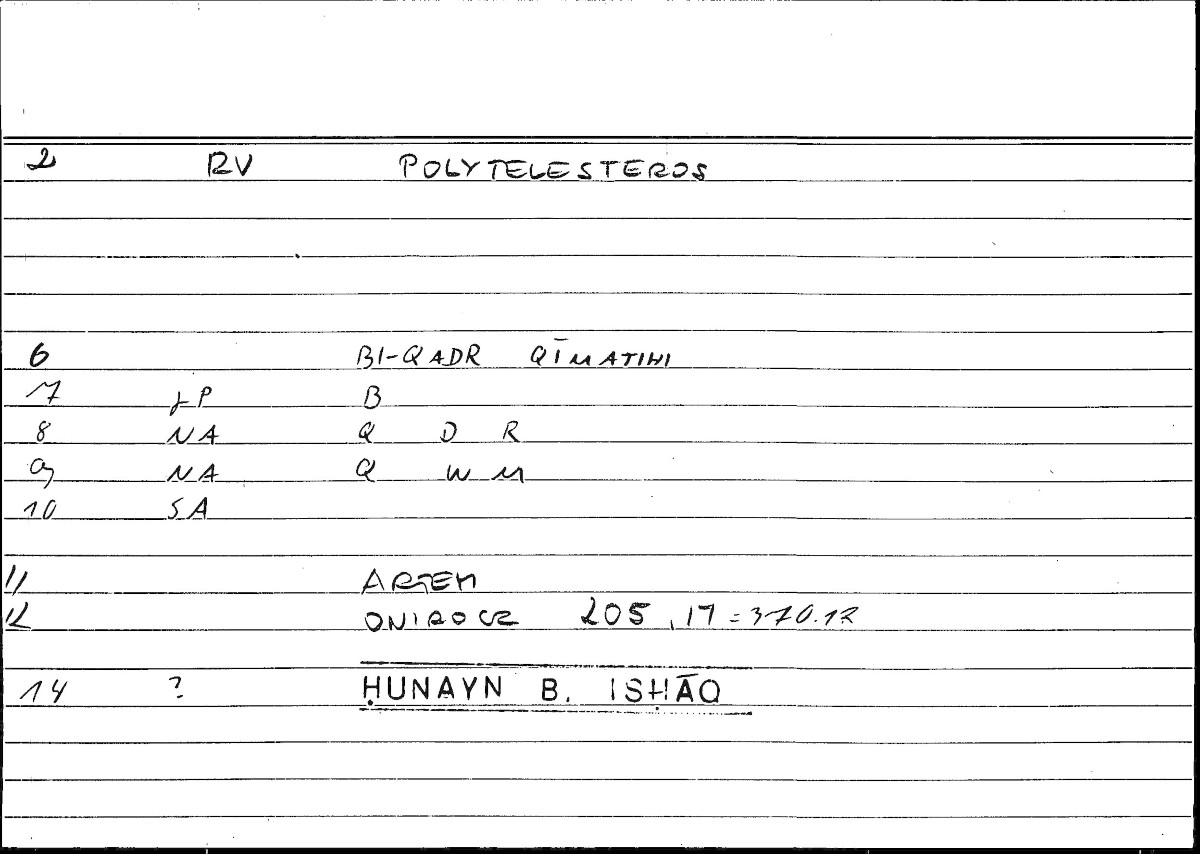 2 RV POLYTELESTEROS
6 BI-QADR QĪMATIHI
7 LP B
8 NA Q D R
9 NA Q W M
10 SA
11 ARTEM
12 ONIROCR 205,17=370.12
14 ? ḤUNAYN B. ISḤĀQ